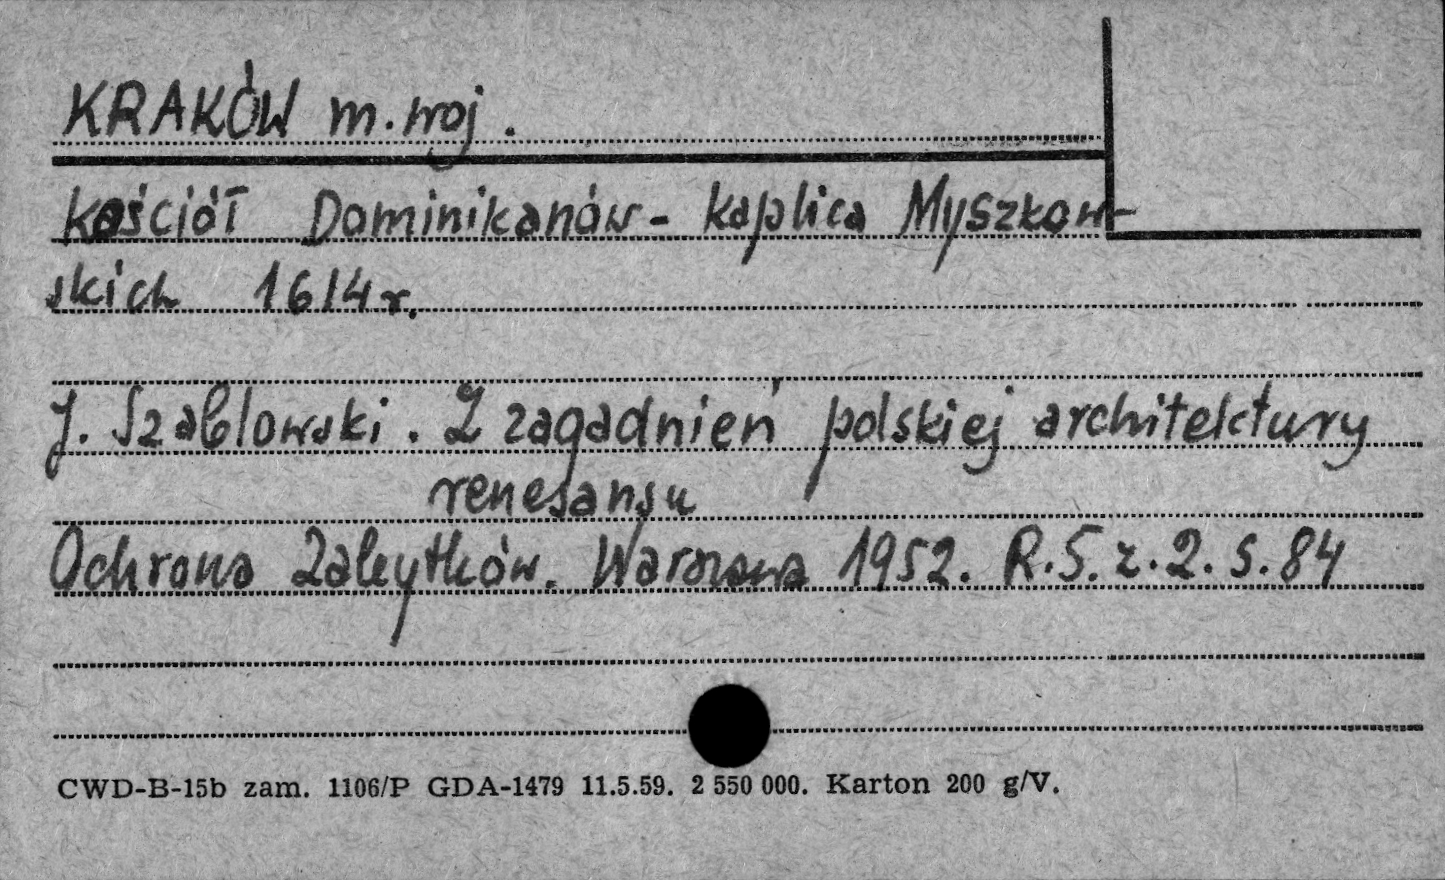 KRAKÓW m. woj.
Kościół Dominikanów - kaplica Myszkow-
skich 1614 r.
J. Szablowski. Z zagadnień polskiej architektury
renesansu
Ochrona Zabytków. Warszawa 1952. R.5. z.2. s.84
CWD-B-15b zam. 1106/P GDA-1479 11.5.59. 2 550 000. Karton 200 g/V.